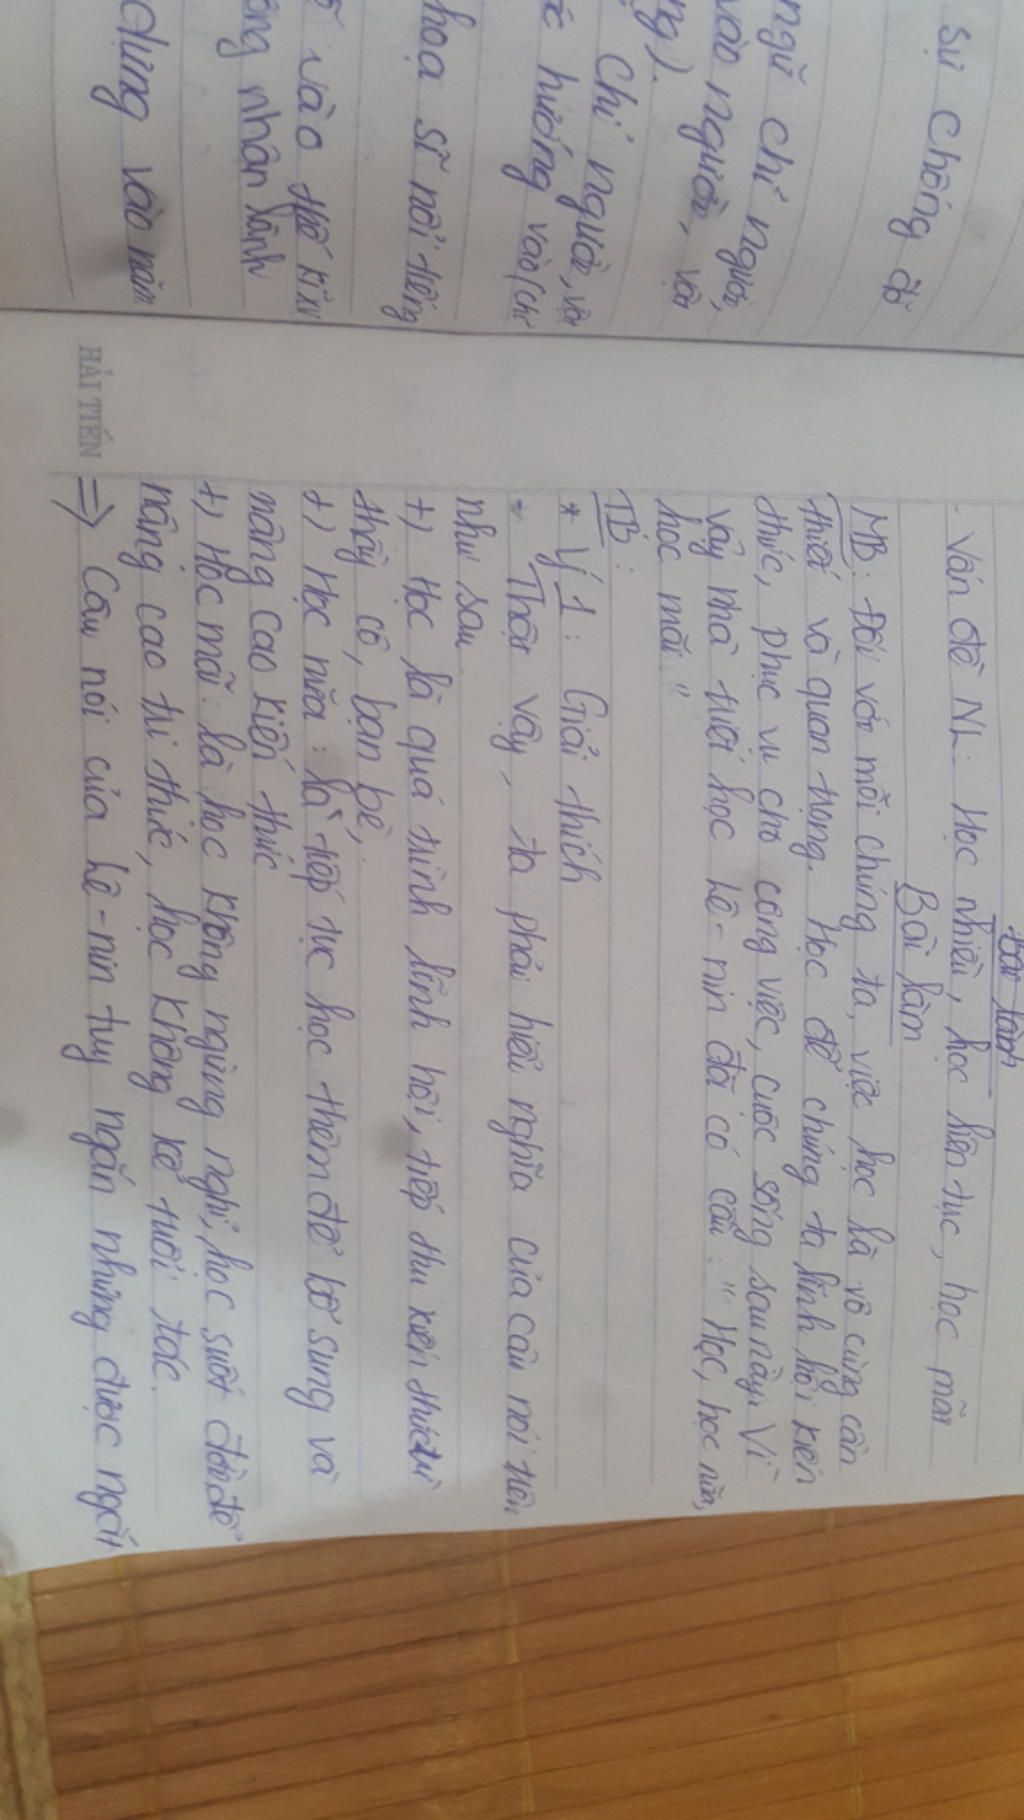 sự chống đỡ
ngữ chỉ người,
vào người, vật
ng).
chỉ người, vật
hướng vào (chỉ
hoạ sĩ nổi tiếng
vào thế kỉ XV
ông nhân hành
dựng vào năm
- Vấn đề NL: Học nhiều, học liên tục, học mãi
Bài làm
MB: Đối với mỗi chúng ta, việc học là vô cùng cần
thiết và quan trọng. Học để chúng ta lĩnh hội kiến
thức, phục vụ cho công việc, cuộc sống sau này. Vì
vậy nhà triết học Lê-nin đã có câu: "Học, học nữa,
học mãi"
TB:
* Ý 1: Giải thích
- Thật vậy, ta phải hiểu nghĩa của câu nói trên
như sau
+) Học là quá trình lĩnh hội, tiếp thu kiến thức từ
thầy cô, bạn bè,..
+) Học nữa: là tiếp tục học thêm để bổ sung và
nâng cao kiến thức
+) Học mãi: là học không ngừng nghỉ, học suốt đời để
nâng cao tri thức, học không kể tuổi tác.
HẢI TIẾN
=> Câu nói của Lê-nin tuy ngắn nhưng được ngắt